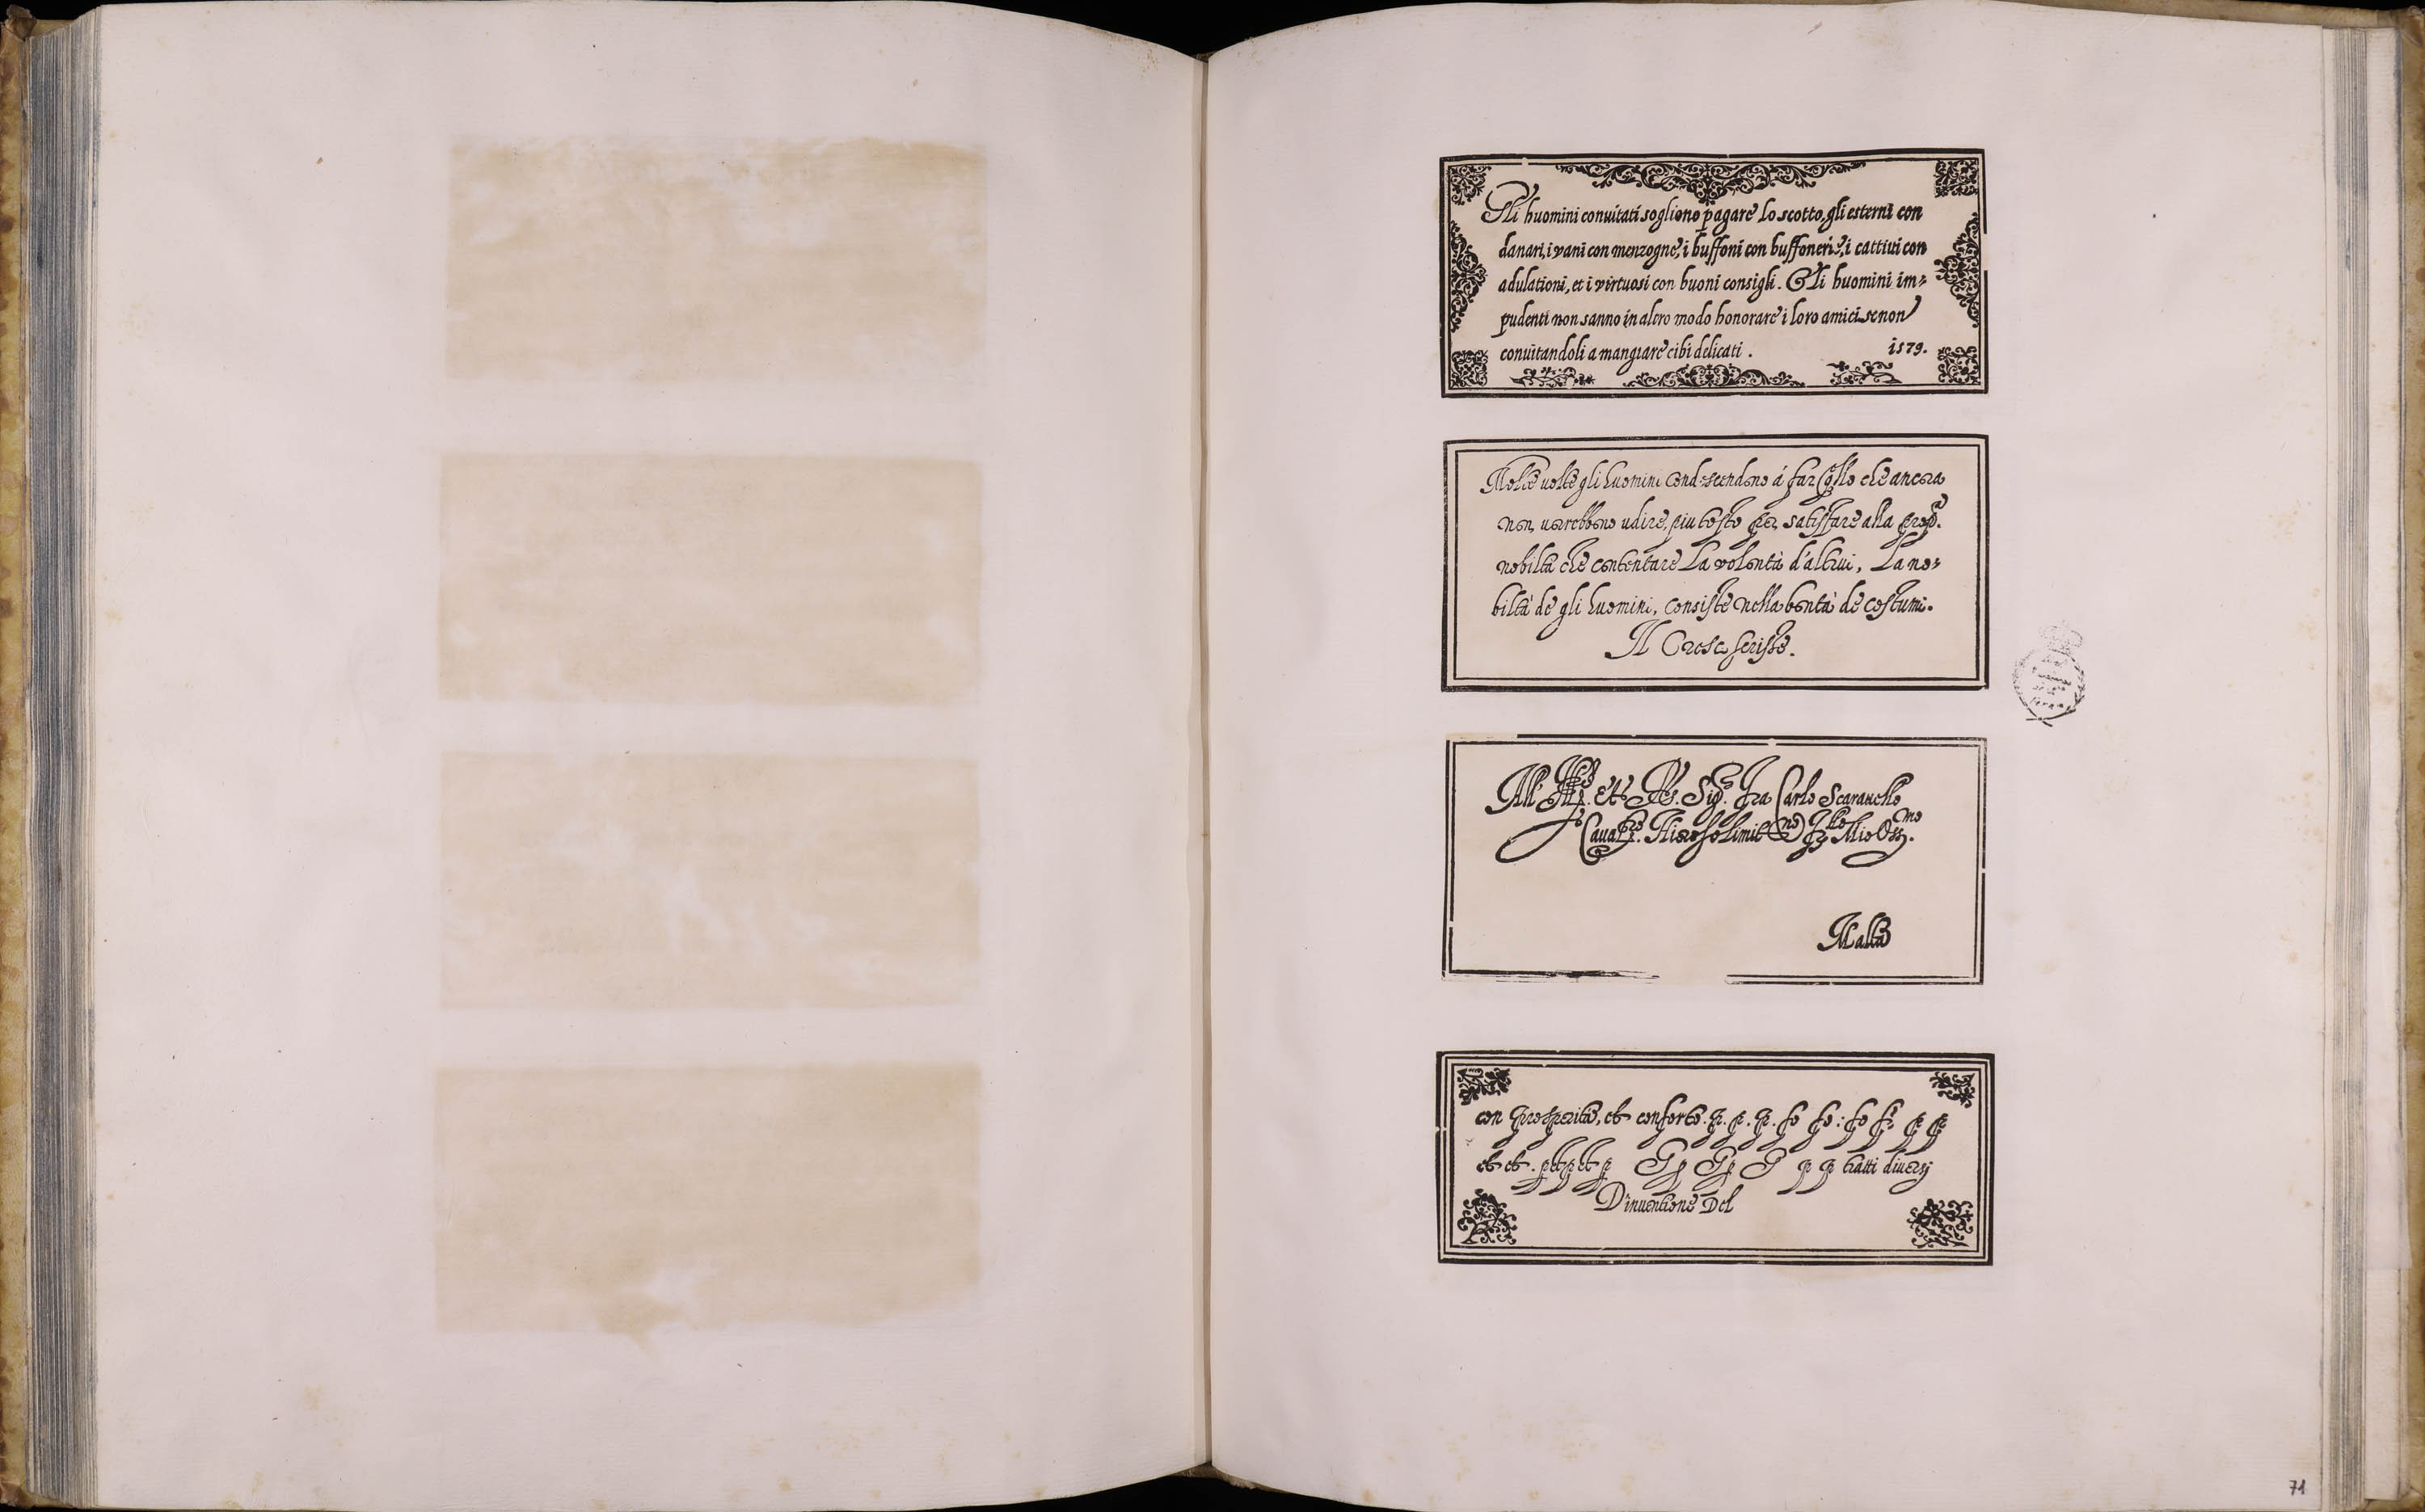 Gli huomini conuitati sogliono pagare lo scotto, gli esterni con
danari, i vani con menzogne, i buffoni con buffonerie, i cattiui con
adulationi, et i virtuosi con buoni consigli. Gli huomini im=
pudenti non sanno in altro modo honorare i loro amici se non
conuitandoli a mangiare cibi delicati.
1579.
Molte uolte gli huomini condescendono á far qllo che ancora
non uorrebbono udire, piu tosto per satisfare alla prop.ª
nobiltà che contentare la volontà d'altrui, La no=
biltà de gli huomini, consiste nella bontà de costumi.
Il Cresci scriste.
All' Ill. et R. Sig. Fra Carlo Scarauello
Caual. Hierosolimit Mio Oss.mo
Malta
con prosperita, et conforto. p. p. p. fo fo: fo f. p p
et et. p et p et p G p G p G p p tratti diuersj
D'inuentione Del
71